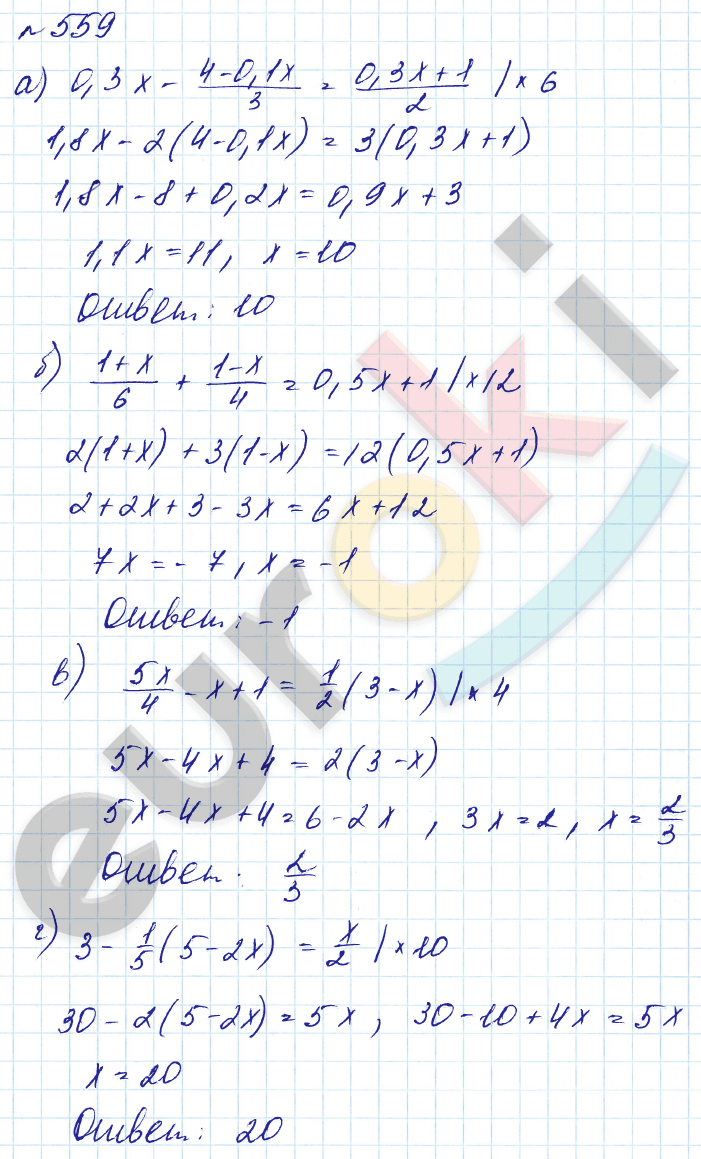 № 559
а) 0,3x - (4-0,1x)/3 = (0,3x+1)/2 | × 6
1,8x - 2(4-0,1x) = 3(0,3x+1)
1,8x - 8 + 0,2x = 0,9x + 3
1,1x = 11, x = 10
Ответ: 10
б) (1+x)/6 + (1-x)/4 = 0,5x+1 | × 12
2(1+x) + 3(1-x) = 12(0,5x+1)
2+2x+3-3x = 6x+12
7x = -7, x = -1
Ответ: -1
в) 5x/4 - x+1 = 1/2(3-x) | × 4
5x-4x+4 = 2(3-x)
5x-4x+4 = 6-2x, 3x = 2, x = 2/3
Ответ: 2/3
г) 3 - 1/5(5-2x) = x/2 | × 10
30-2(5-2x) = 5x, 30-10+4x = 5x
x = 20
Ответ: 20
euroki